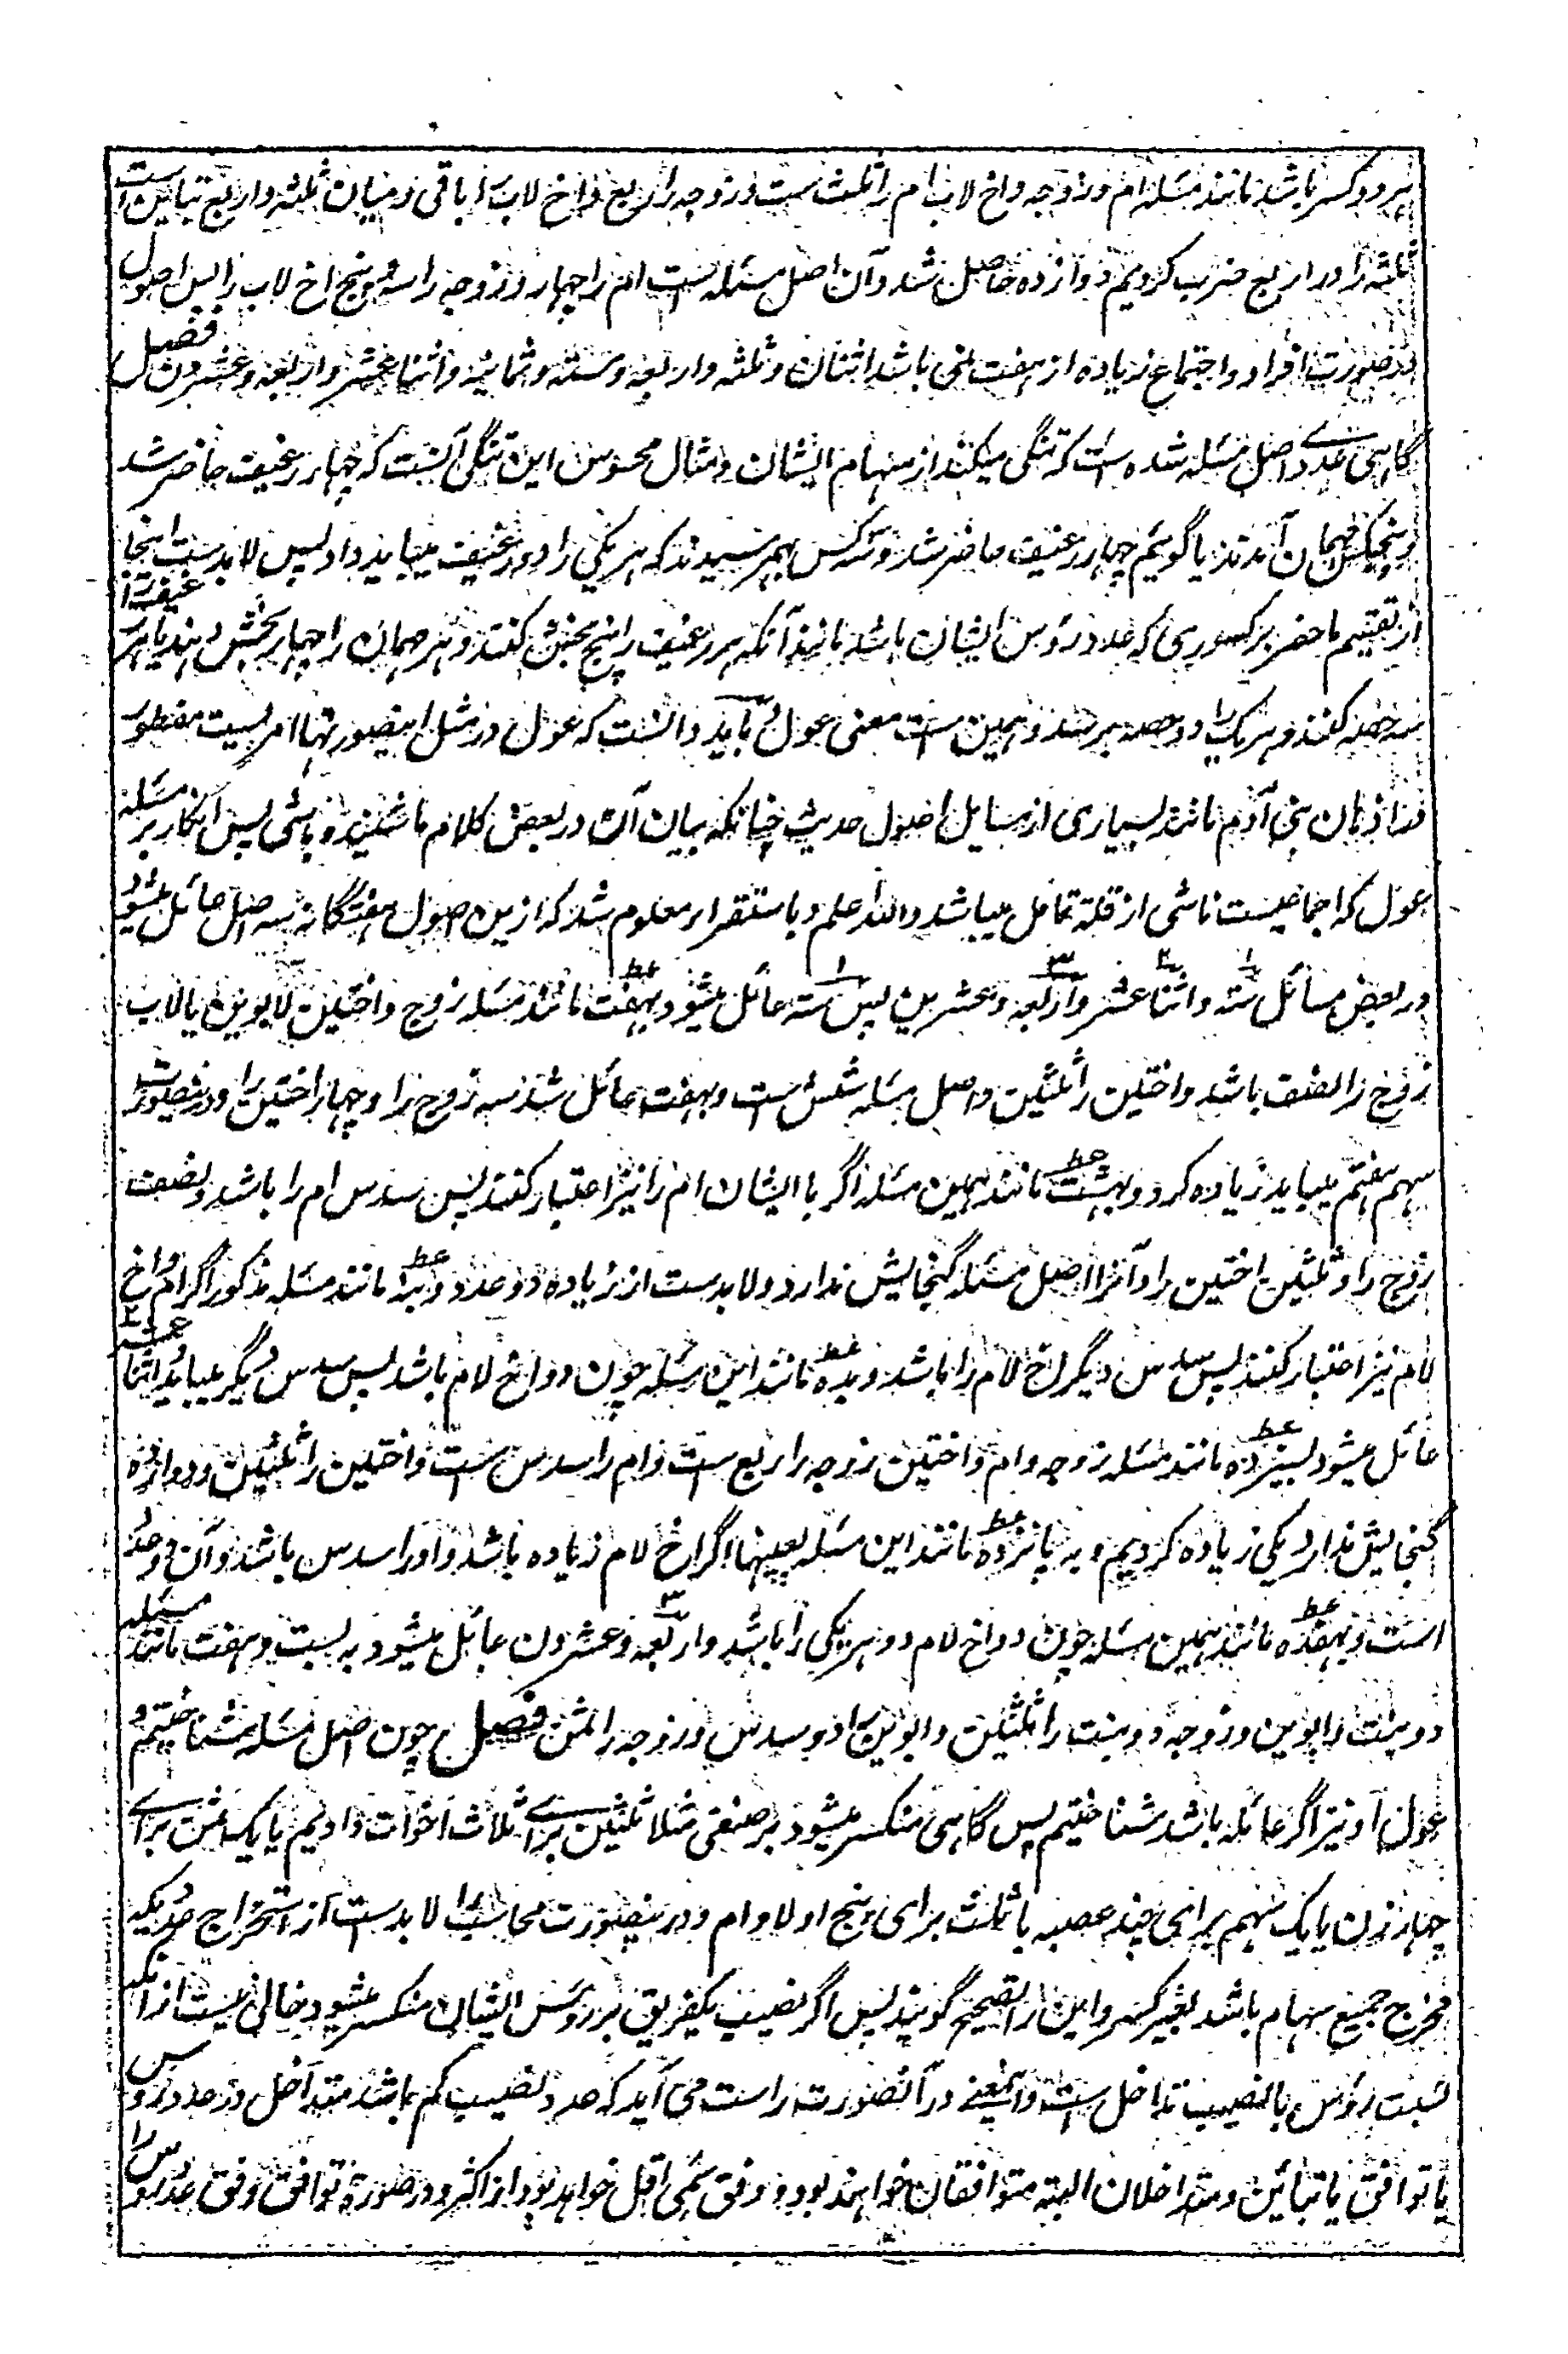 هر دو کسر باشد مانند مسئله ام و زوجه و اخ لاب ام را ثلث ست و زوجه را ربع و اخ لاب را باقی و میان ثلثه و اربع تباین است
ثلثه را در اربع ضرب کردیم دوازده حاصل شد و آن اصل مسئله است ام را چهار و زوجه را سه و پنج اخ لاب را پس اصول
در صورت افراد و اجتماع زیاده از هفت نمی باشد اثنان و ثلثه و اربعه و سته و ثمانیه و اثنا عشر و اربعه و عشرون فصل
گاهی عددے اصل مسئله شده است که تنگی میکند از سهام ایشان و مثال محسوس این تنگی آنست که چهار رغیف حاضر شد
و پنج کس مهمان آمدند یا گوئیم چهار رغیف حاضر شد و سه کس بهم رسیدند که هر یکی را دو رغیف میباید داد پس لابد ست اینجا
از تقسیم ماحضر بر کسوری که عدد رؤس ایشان باشد مانند آنکه هر رغیف را پنج بخش کنند و هر مهمان را چهار بخش دهند یا هر رغیف را
سه حصه کنند و هر یک را دو حصه برسد و همین ست معنی عول و باید دانست که عول در مثل اینصورتها امریست مفطور
در اذهان بنی آدم مانند بسیاری از مسایل اصول حدیث چنانکه بیان آن در بعض کلام ما شنیده باشی پس انکار بر مسئله
عول که اجماعیست ناشی از قلة تامل میباشد والله اعلم و باستقراء معلوم شد که ازین اصول هفتگانه سه اصل عائل میشود
در بعض مسائل سته و اثنا عشر و اربعه و عشرین پس سته عائل میشود بهفت مانند مسئله زوج و اختین لابوین یا لاب
زوج را نصف باشد و اختین را ثلثین و اصل مسئله شش است و بهفت عائل شد سه زوج را و چهار اختین را و درینصورت
سهم هفتم میباید زیاده کرد و بهشت مانند همین مسئله اگر با ایشان ام را نیز اعتبار کنند پس سدس ام را باشد و نصف
زوج را و ثلثین اختین را و آنرا اصل مسئله گنجایش ندارد و لابدست از زیاده دو عدد و بنه مانند مسئله مذکور اگر ام و اخ
لام نیز اعتبار کنند پس سدس دیگر اخ لام را باشد و بده مانند این مسئله چون دو اخ لام باشد پس سدس دیگر میباید و اثنا عشر
عائل میشود بسیزده مانند مسئله زوجه و ام و اختین زوجه را ربع ست و ام را سدس ست و اختین را ثلثین و دوازده
گنجایش ندارد یکی زیاده کردیم و به پانزده مانند این مسئله بعینها اگر اخ لام زیاده باشد و او را سدس باشد و آن دو عدد
است و بهفده مانند همین مسئله چون دو اخ لام دو هر یکی را باشد و اربعه و عشرون عائل میشود به بست و هفت مانند مسئله
دو بنت و ابوین و زوجه دو بنت را ثلثین و ابوین را دو سدس و زوجه را ثمن فصل چون اصل مسئله شناختیم و
عول او نیز اگر عائله باشد شناختیم پس گاهی منکسر میشود بر صنفی مثلا ثلثین برائے ثلاث اخوات دادیم یا یک ثمن برائے
چهار زن یا یک سهم برای چند عصبه یا ثلث برای پنج اولاد ام و درینصورت محاسب را لابدست از استخراج عددیکه
مخرج جمیع سهام باشد بغیر کسر و این را تصحیح گویند پس اگر نصیب یکفریق بر رؤس ایشان منکسر میشود خالی نیست از آنکه
نسبت رؤس با نصیب تداخل ست و اینمعنے در آنصورت راست می آید که عدد نصیب کم باشد متداخل در عدد رؤس
یا توافق یا تباین و متداخلان البته متوافقان خواهند بود و وفق سمی اقل خواهد بود از اکثر و در صورة توافق وفق عدد رؤس را